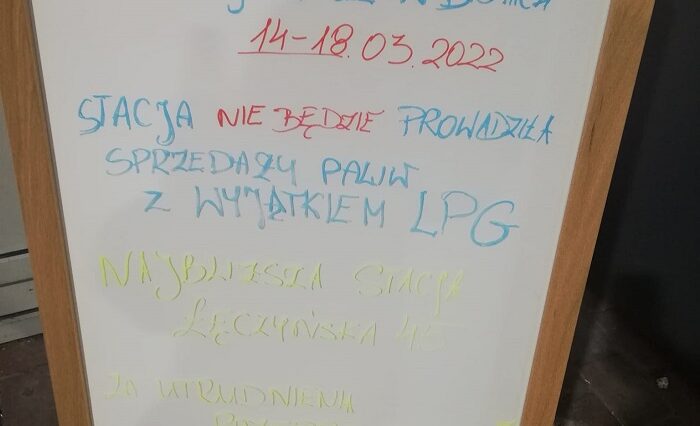 14-18.03.2022
STACJA NIE BĘDZIE PROWADZIŁA
SPRZEDAŻY PALIW
Z WYJĄTKIEM LPG
NAJBLIŻSZA STACJA
ŁĘCZYŃSKA 45
ZA UTRUDNIENIA